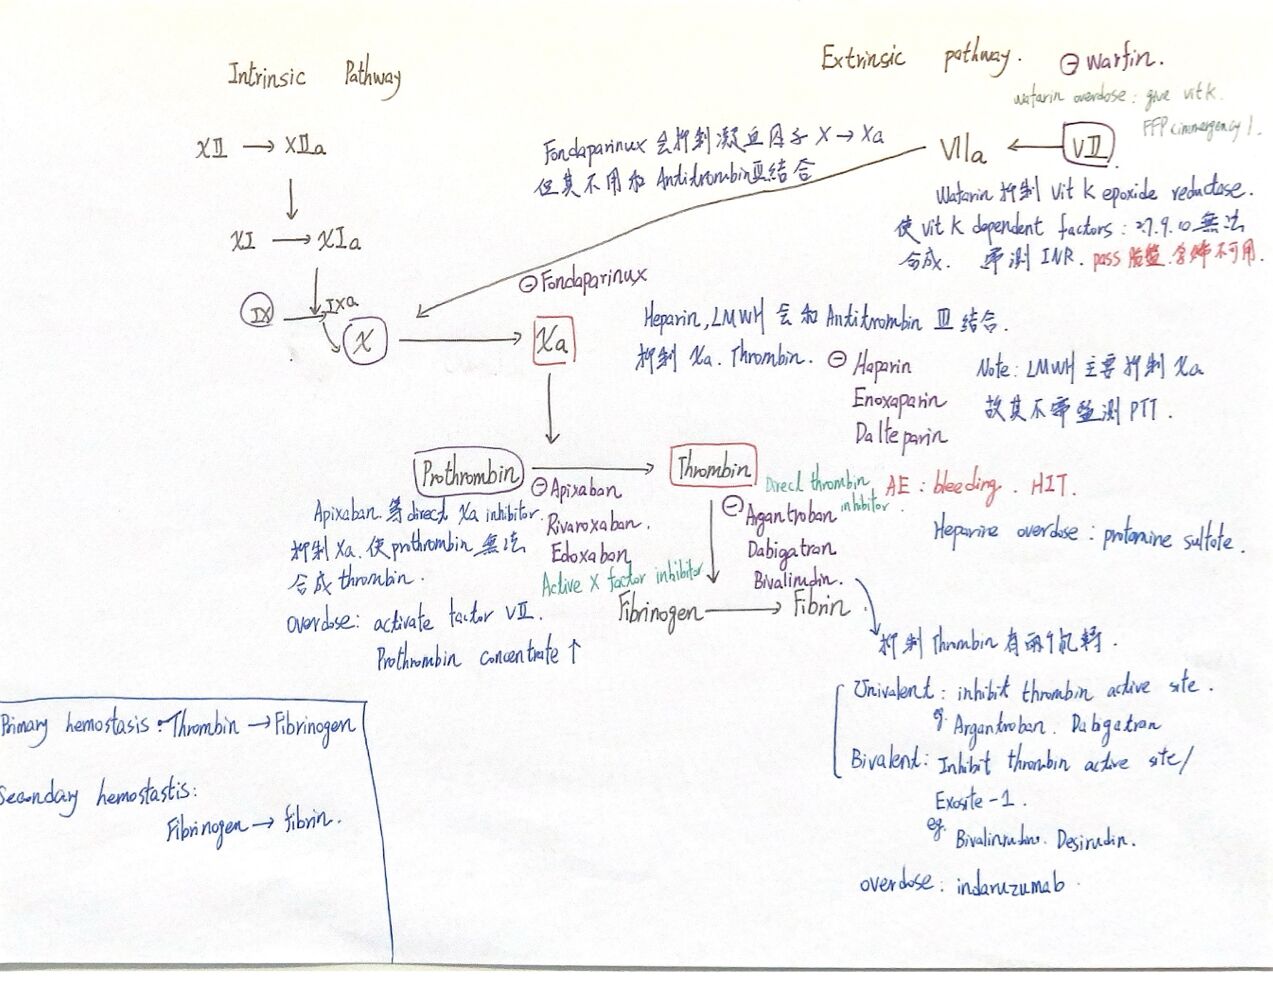 Intrinsic Pathway
Extrinsic pathway.
⊖ Warfin.
Watarin overdose : give vit k.
FFP (immergency).
XII → XIIa
Fondaparinux 会抑制凝血因子 X → Xa
但其不用和 Antitrombin Ⅲ结合
VIIa ← VII
Watarin 抑制 Vit K epoxide reductase.
使 vit K dependent factors : 2.7.9.10 無法
合成. 需測 INR. pass 胎盤. 孕婦不可用.
XI → XIa
⊖ Fondaparinux
IX → IXa
X → Xa
Heparin, LMWH 会和 Antitrombin Ⅲ 结合.
抑制 Xa. Thrombin.
⊖ Haparin
Enoxaparin
Dalteparin
Note : LMWH 主要抑制 Xa
故其不需監測 PTT.
Prothrombin → Thrombin
⊖ Apixaban
Rivaroxaban.
Edoxaban
Active X factor inhibitor
Direct thrombin
inhibitor.
AE : bleeding . HIT.
Heparine overdose : protamine sulfate.
Apixaban 等 direct Xa inhibitor.
抑制 Xa. 使 prothrombin 無法
合成 thrombin.
overdose : activate factor VII.
Prothrombin concentrate ↑
⊖ Argantroban
Dabigatran
Bivalirudin.
Fibrinogen → Fibrin
抑制 Thrombin 有兩个机轉.
Univalent : inhibit thrombin active site.
eg. Argantroban. Dabigatran
Bivalent : Inhibit thrombin active site/
Exosite-1.
eg. Bivalinrudin. Desirudin.
overdose : indaruzumab.
Primary hemostasis : Thrombin → Fibrinogen
Secondary hemostastis :
Fibrinogen → fibrin.